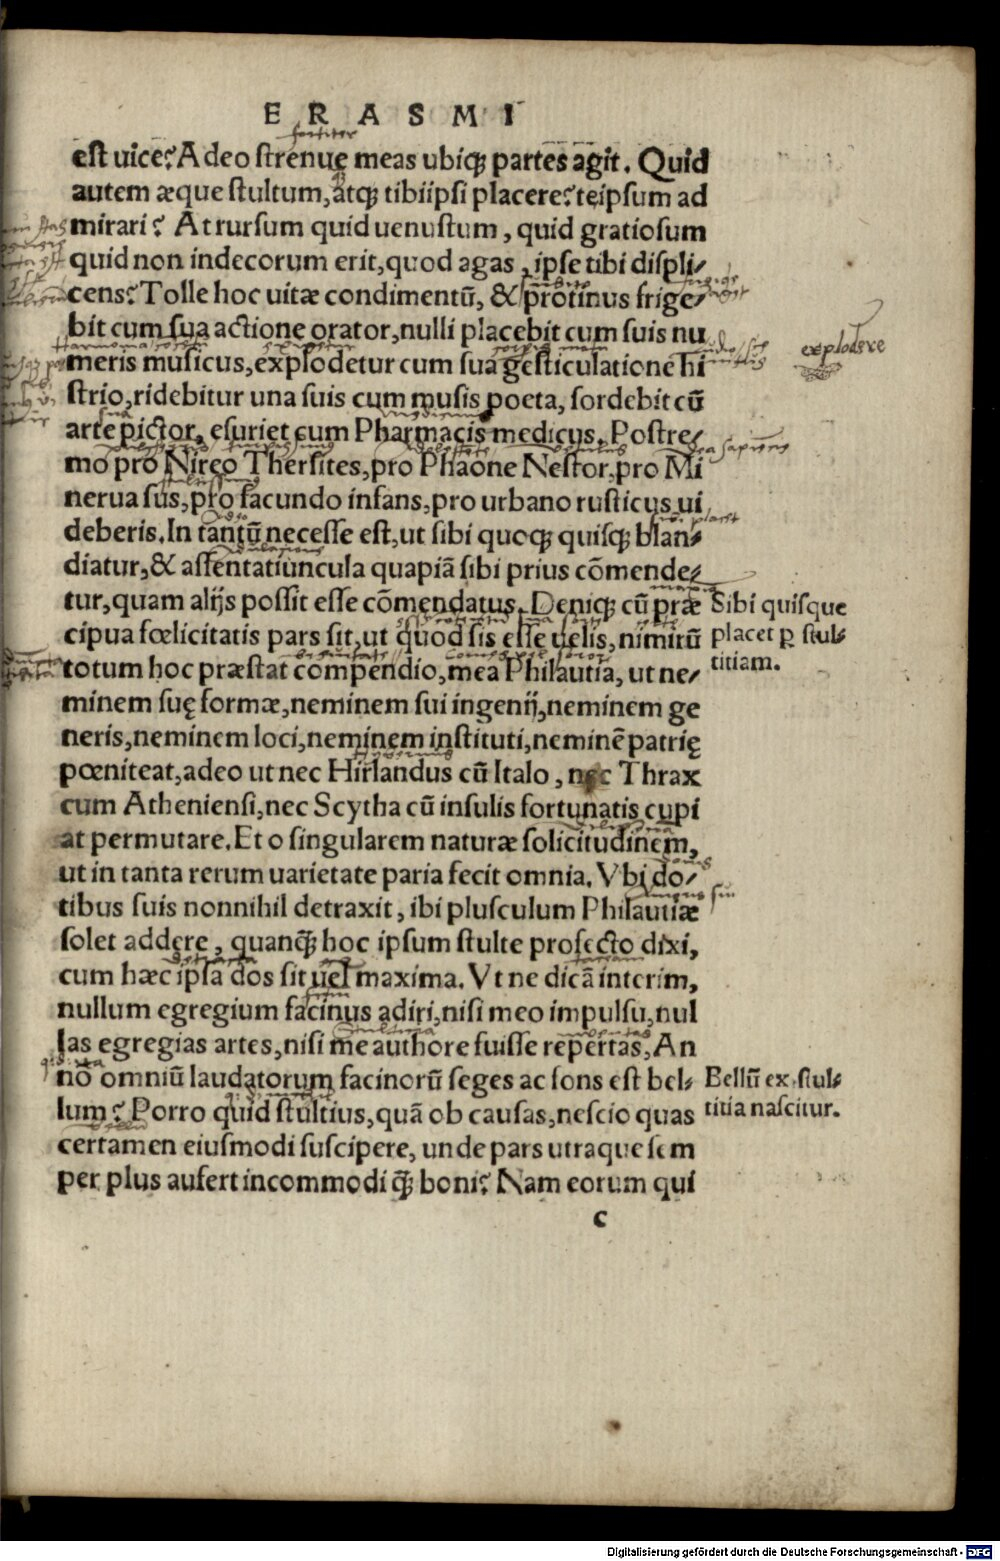 ERASMI
fortiter
est uice? Adeo strenue meas ubiq; partes agit. Quid
autem æque stultum, atq; tibiipsi placere? teipsum ad
mirari? At rursum quid uenustum, quid gratiosum
quid non indecorum erit, quod agas, ipse tibi displi⸗
cens? Tolle hoc uitæ condimentũ, & protinus frige⸗
bit cum sua actione orator, nulli placebit cum suis nu
meris musicus, explodetur cum sua gesticulatione hi
explodere
strio, ridebitur una suis cum musis poeta, sordebit cũ
arte pictor, esuriet cum Pharmacis medicus. Postre⸗
mo pro Nireo Thersites, pro Phaone Nestor, pro Mi
nerua sus, pro facundo infans, pro urbano rusticus ui
deberis. In tantũ necesse est, ut sibi quoq; quisq; blan⸗
diatur, & assentatiuncula quapiã sibi prius cõmende⸗
tur, quam alijs possit esse cõmendatus. Deniq; cũ præ
cipua fœlicitatis pars sit, ut quod sis esse uelis, nimirũ
totum hoc præstat compendio, mea Philautia, ut ne⸗
Sibi quisque
placet ꝑ stul⸗
titiam.
minem suę formæ, neminem sui ingenij, neminem ge
neris, neminem loci, neminem instituti, neminẽ patrię
pœniteat, adeo ut nec Hirlandus cũ Italo, nec Thrax
cum Atheniensi, nec Scytha cũ insulis fortunatis cupi
at permutare. Et o singularem naturæ solicitudinem,
ut in tanta rerum uarietate paria fecit omnia. Vbi do⸗
tibus suis nonnihil detraxit, ibi plusculum Philautiæ
solet addere, quanq̃; hoc ipsum stulte profecto dixi,
cum hæc ipsa dos sit uel maxima. Vt ne dicã interim,
nullum egregium facinus adiri, nisi meo impulsu, nul
las egregias artes, nisi me authore fuisse repertas, An
nõ omniũ laudatorum facinorũ seges ac fons est bel⸗
lum? Porro quid stultius, quã ob causas, nescio quas
Bellũ ex stul⸗
titia nascitur.
certamen eiusmodi suscipere, unde pars utraque sem
per plus aufert incommodi q̃; boni? Nam eorum qui
c
Digitalisierung gefördert durch die Deutsche Forschungsgemeinschaft - DFG